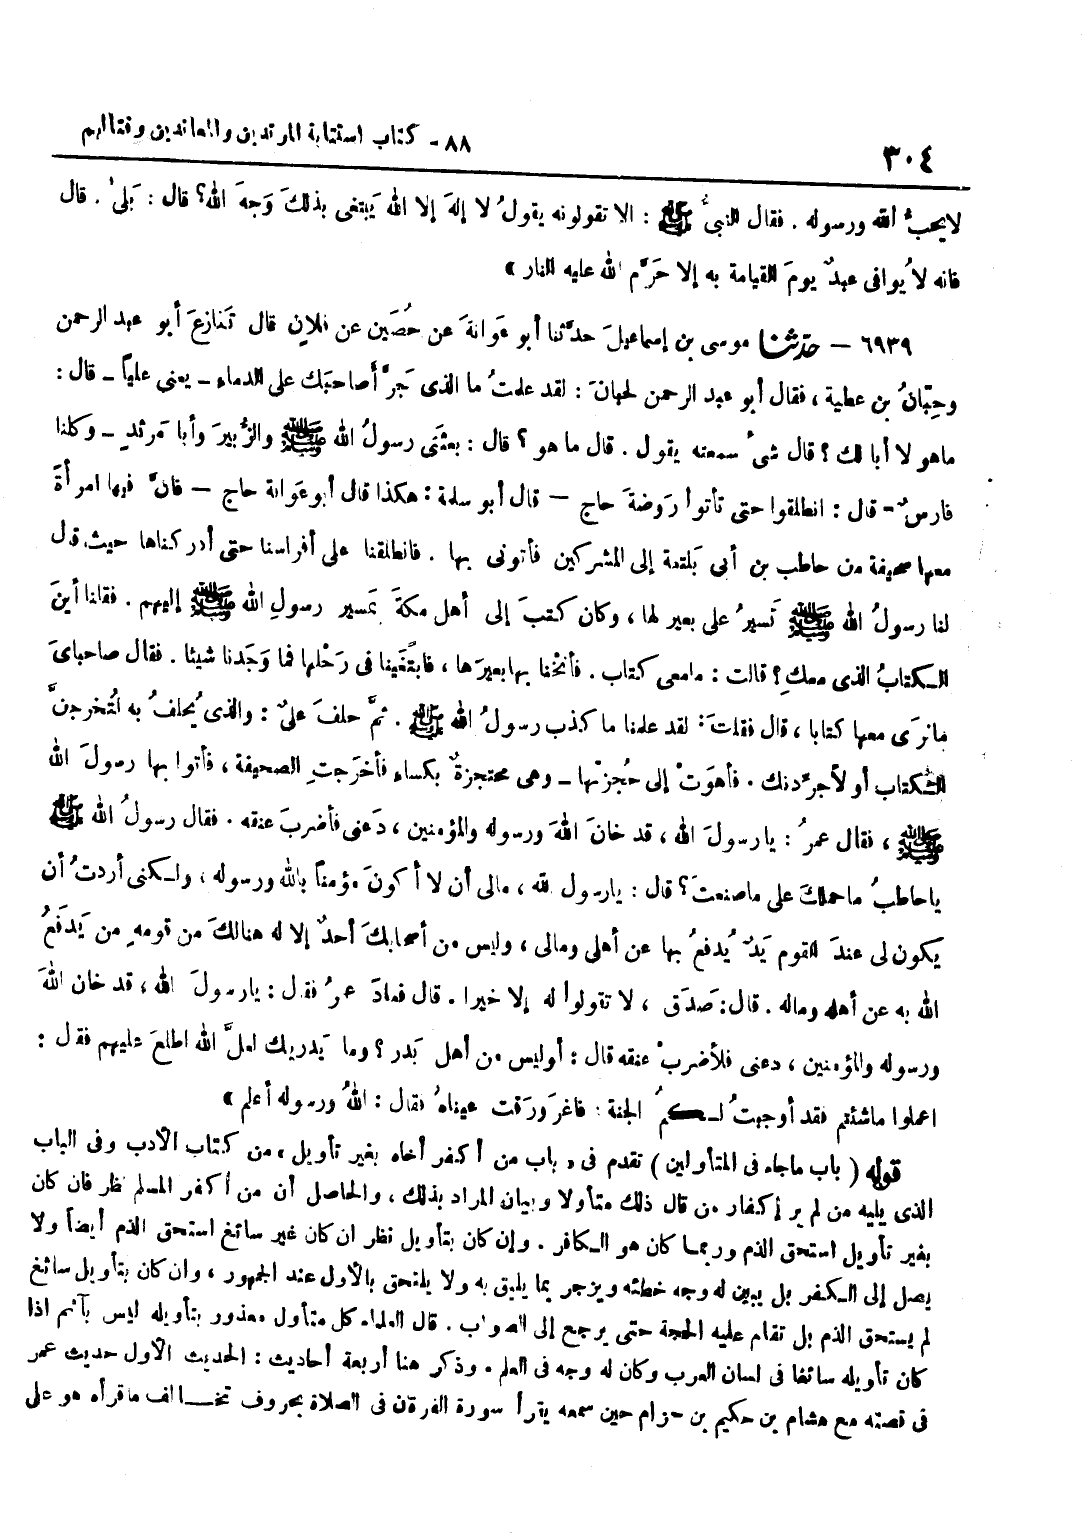 ٣٠٤
٨٨ - كتاب استتابة المرتدين والمعاندين وقتالهم
لا يحبُّ اللهَ ورسوله . فقال النبىُّ ﷺ : الا تقولونه يقولُ لا إلهَ إلا اللهُ يَبتغى بذلكَ وَجهَ اللهِ؟ قال : بَلىٰ . قال
فانه لا يُوافى عبدٌ يومَ القيامة به إلا حَرَّم اللهُ عليه النار »
٦٩٣٩ – حدّثنا موسى بن إسماعيلَ حدَّثنا أبو عَوانةَ عن حُصَين عن فلانٍ قال تَنازعَ أبو عبد الرحمن
وحِبّانُ بن عطية ، فقال أبو عبد الرحمن لحبانَ : لقد علمتُ ما الذى جَرَّأَ صاحبَك على الدماء ـ يعنى علياً ـ قال :
ماهو لا أبا لك ؟ قال شىءٌ سمعته يقول . قال ما هو ؟ قال : بعثَنى رسولُ الله ﷺ والزُّبيرَ وأبا مَرثد ـ وكلنا
فارسٌ - قال : انطلقوا حتى تأتوا رَوضةَ حاج – قال أبو سلمة : هكذا قال أبو عَوانة حاج – فانَّ فيها امرأةً
معها صحيفة من حاطب بن أبى بَلتعة إلى المشركين فأتونى بها . فانطلقنا على أفراسنا حتى أدركناها حيث قال
لنا رسولُ الله ﷺ تَسيرُ على بعير لها ، وكان كتبَ إلى أهل مكةَ بمَسير رسولِ الله ﷺ إليهم . فقلنا أينَ
الـكتابُ الذى معكِ؟ قالت : مامعى كتاب . فأنخْنا بها بعيرَها ، فابتغَينا فى رَحْلها فما وَجَدنا شيئا . فقال صاحباىَ
مانرَى معها كتابا ، قال فقلتُ : لقد علمنا ما كذب رسولُ الله ﷺ . ثمَّ حلفَ علىٌّ : والذى يُحلفُ به لتُخرجِنَّ
الـكتاب أو لأجرِّدنك . فأهوَتْ إلى حُجزتها ـ وهى محتجزةٌ بكساء فأخرَجتِ الصحيفة ، فأتوا بها رسولَ الله
ﷺ ، فقال عمرُ : يا رسولَ الله ، قد خانَ اللهَ ورسوله والمؤمنين ، دَعنى فأضربَ عنقه . فقال رسولُ الله ﷺ
ياحاطبُ ماحملكَ على ماصنعتَ ؟ قال : يارسول الله ، مالى أن لا أكونَ مؤمناً بالله ورسوله ، ولـكنى أردتُ أن
يكون لى عندَ القوم يَدٌ يُدفعُ بها عن أهلى ومالى ، وليس من أصحابكَ أحدٌ إلا له هنالكَ من قومهِ من يَدفَعُ
الله به عن أهله وماله . قال: صَدَق ، لا تقولوا له إلا خيرا . قال فعادَ عمرُ فقال : يارسولَ الله ، قد خان اللهَ
ورسوله والمؤمنين ، دعنى فلأضربْ عنقه قال : أوليس من أهل بَدر ؟ وما يُدريك لعلَّ الله اطلعَ عليهم فقال :
اعملوا ماشئتم فقد أوجبتُ لـكمُ الجنة : فاغرَورَقت عيناهُ فقال : اللهُ ورسوله أعلم »
قوله ( باب ماجاء فى المتأولين ) تقدم فى « باب من أكفر أخاه بغير تأويل » من كتاب الأدب وفى الباب
الذى يليه من لم ير إكفار من قال ذلك متأولا وبيان المراد بذلك ، والحاصل أن من أكفر المسلم نظر فان كان
بغير تأويل استحق الذم وربمـا كان هو الـكافر . وإن كان بتأويل نظر ان كان غير سائغ استحق الذم أيضاً ولا
يصل إلى الـكفر بل يبين له وجه خطئه ويزجر بما يليق به ولا يلتحق بالأول عند الجمهور ، وان كان بتأويل سائغ
لم يستحق الذم بل تقام عليه الحجة حتى يرجع إلى الصواب . قال العلماء كل متأول معذور بتأويله ليس بآثم اذا
كان تأويله سائغا فى لسان العرب وكان له وجه فى العلم . وذكر هنا أربعة أحاديث : الحديث الأول حديث عمر
فى قصته مع هشام بن حكيم بن حزام حين سمعه يقرأ سورة الفرقان فى الصلاة بحروف تخـالف ماقرأه هو على